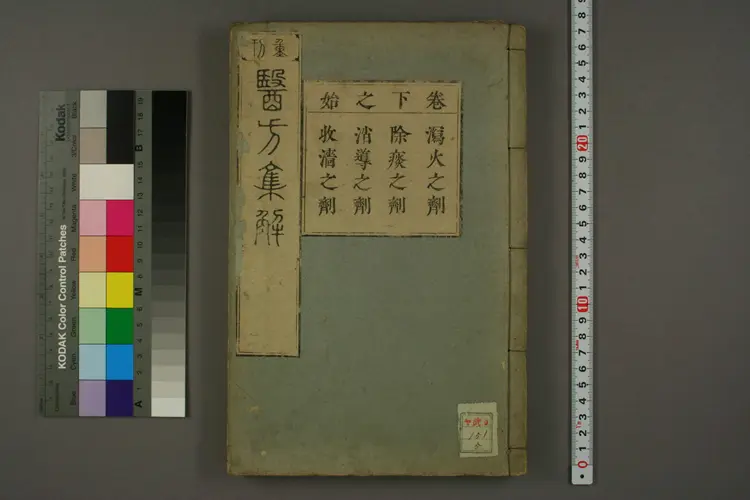 重刊
醫方集解
卷下之始
瀉火之劑
除痰之劑
消導之劑
收濇之劑
151
Kodak
KODAK Color Control Patches
Blue
Cyan
Green
Yellow
Red
Magenta
White
Black
A
M
B
1 2 3 4 5 6 7 8 9 10 11 12 13 14 15 16 17 18 19
0 1 2 3 4 5 6 7 8 9 10 1 2 3 4 5 6 7 8 9 20 1 2 3 4 5 6 7 8